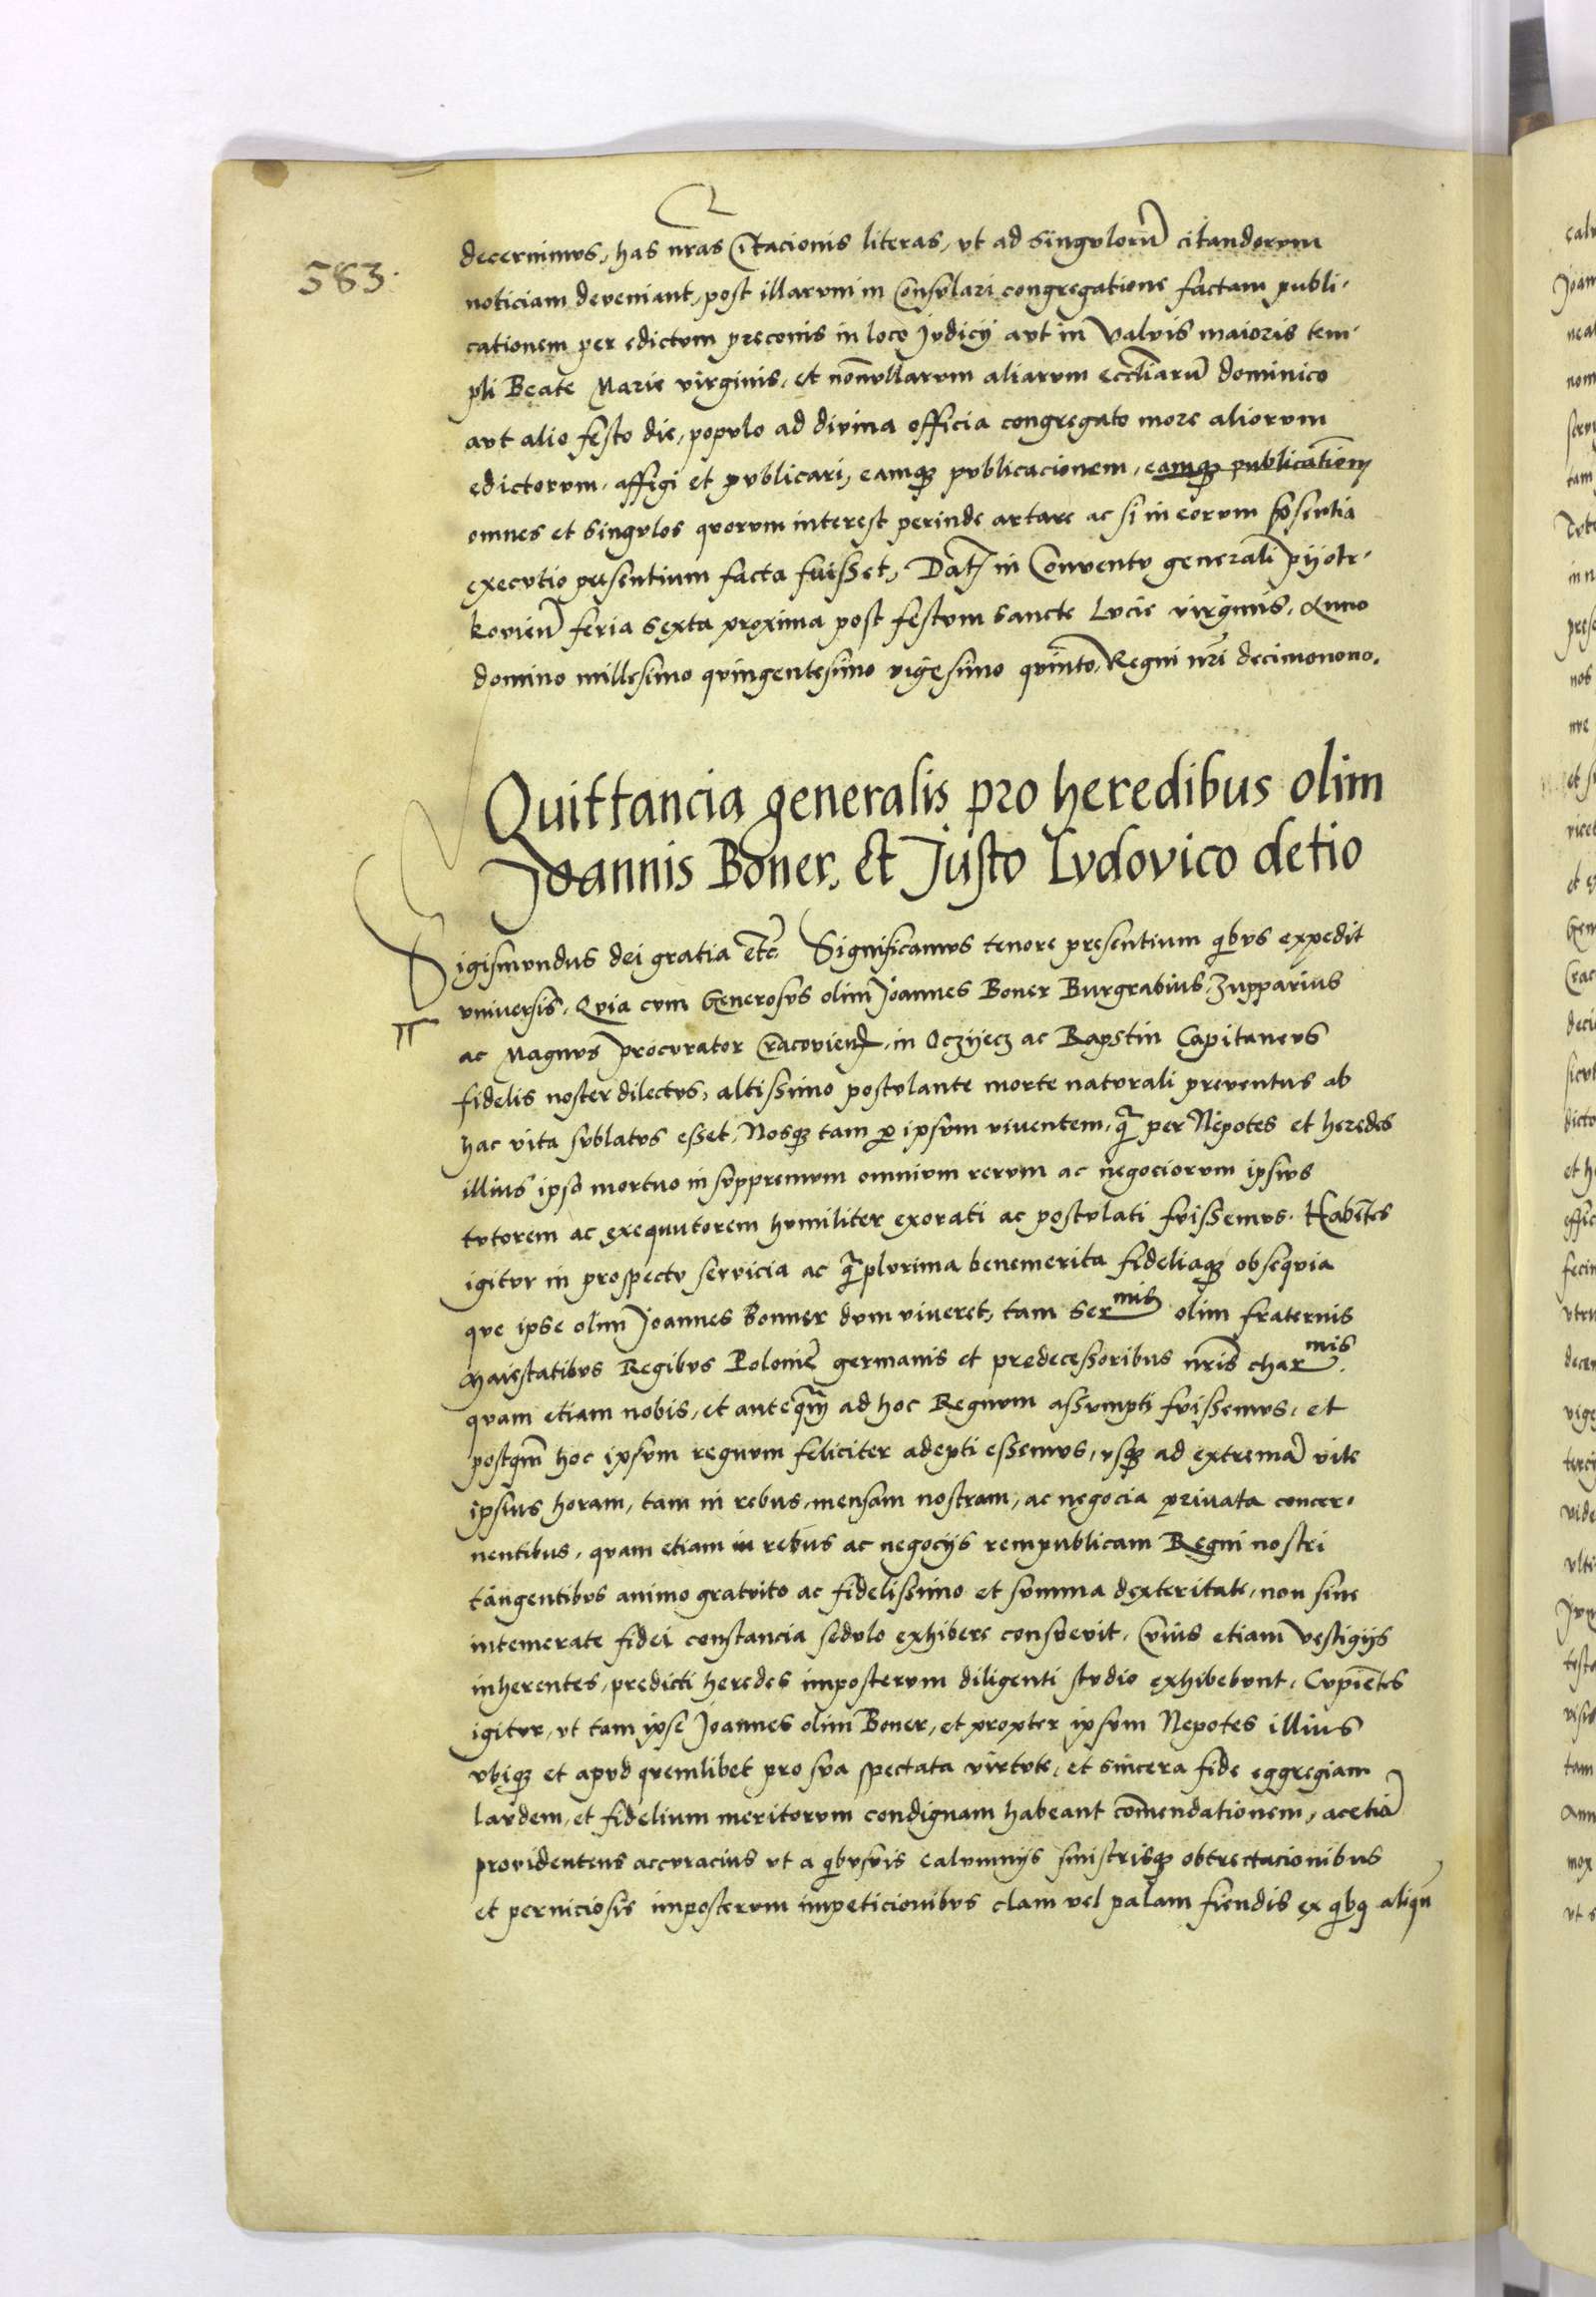 583.
decernimus, has nr̃as Citacionis literas, vt ad singulorũ citandorum
noticiam deveniant, post illarum in Consulari congregatione factam publi-
cationem per edictum preconis in loco Judicij aut in Valuis maioris tem-
pli Beate Marie virginis, et nonnullarum aliarum eccl̃iarũ dominico
aut alio festo die, populo ad diuina officia congregato more aliorum
edictorum, affigi et publicari, eamqȝ publicacionem, eamqȝ publicatioñ
omnes et singulos quorum interest perinde artare ac si in eorum p̃sentia
executio presentium facta fuisset, Dat̃ in Conuentu generali pijotr-
kovien̄ feria sexta proxima post festum sancte Lucie virginis, Anno
domino millesimo quingentesimo vigesimo quinto, Regni nr̃i decimonono.
Quittancia generalis pro heredibus olim
Joannis Boner, et Justo Ludovico detio
Sigismundus dei gratia etc̃ Significamus tenore presentium qibus expedit
vniversis, Quia cum Generosus olim Joannes Boner Burgrabius, Zupparius
ac Magnus procurator Cracovieñ, in Oczijecz ac Rapstin Capitaneus
fidelis noster dilectus, altissimo postulante morte naturali preventus ab
hac vita sublatus esset, Nosqȝ tam ꝑ ipsum viventem, q̃ per Nepotes et heredes
illius ipso mortuo in suppremum omnium rerum ac negociorum ipsius
tutorem ac exequutorem humiliter exorati ac postulati fuissemus. Habẽtes
igitur in prospectu servicia ac q̃plurima benemerita fideliaqȝ obsequia
que ipse olim Joannes Bonner dum viveret, tam Sermis olim fraternis
Maiestatibus Regibus Polonie germanis et predecessoribus nr̃is charmis.
quam etiam nobis, et anteq̃m ad hoc Regnum assumpti fuissemus, et
postqm̃ hoc ipsum regnum feliciter adepti essemus, usqȝ ad extremã vite
ipsius horam, tam in rebus, mensam nostram, ac negocia privata concer-
nentibus, quam etiam in rebus ac negocijs rempublicam Regni nostri
tangentibus animo gratuito ac fidelissimo et summa dexteritate, non sine
intemerate fidei constancia sedulo exhibere consuevit. Cuius etiam vestigijs
inherentes, predicti heredes imposterum diligenti studio exhibebunt, Cupiẽtes
igitur, vt tam ipse Joannes olim Boner, et propter ipsum Nepotes illius
ubiqȝ et apud quemlibet pro sua spectata virtute, et sincera fide eggregiam
laudem, et fidelium meritorum condignam habeant com̃endationem, ac etiã
providentens accuracius vt a qibusuis calumnijs sinistrisqȝ obtrectacionibus
et perniciosis imposterum impeticionibus clam vel palam fiendis ex qibq aliqñ